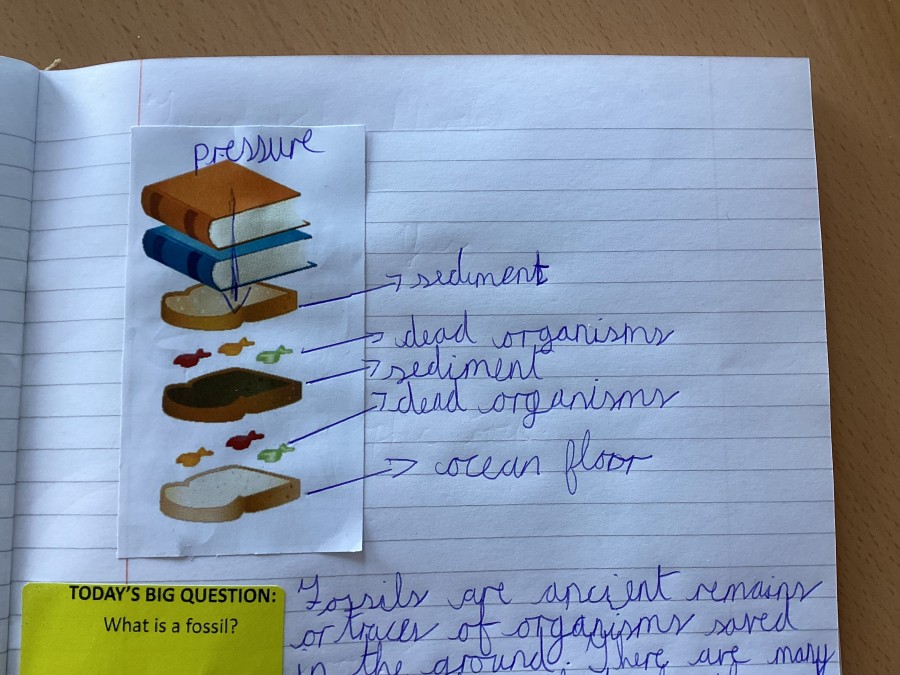 pressure
sediment
dead organisms
sediment
dead organisms
ocean floor
TODAY'S BIG QUESTION:
What is a fossil?
Fossils are ancient remains
or traces of organisms saved
in the ground. There are many